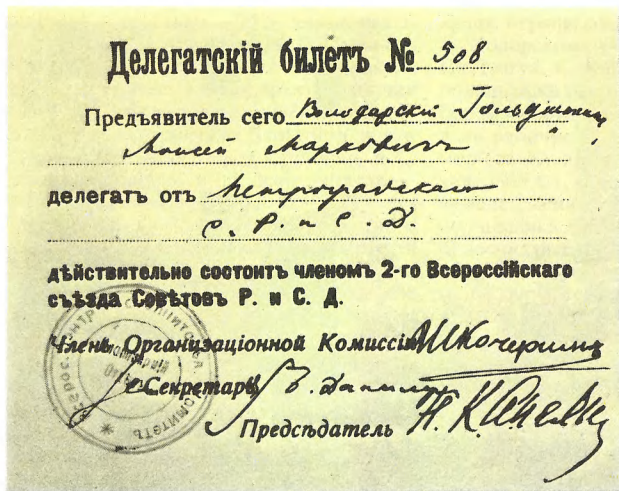 Делегатскій билетъ № 508
Предъявитель сего Володарскій Гольдштейнъ
Моисей Марковичъ
делегатъ отъ Петроградскаго
С. Р. и С. Д.
дѣйствительно состоитъ членомъ 2-го Всероссійскаго
съѣзда Совѣтовъ Р. и С. Д.
Членъ Организаціонной Комиссіи
Секретарь
Предсѣдатель